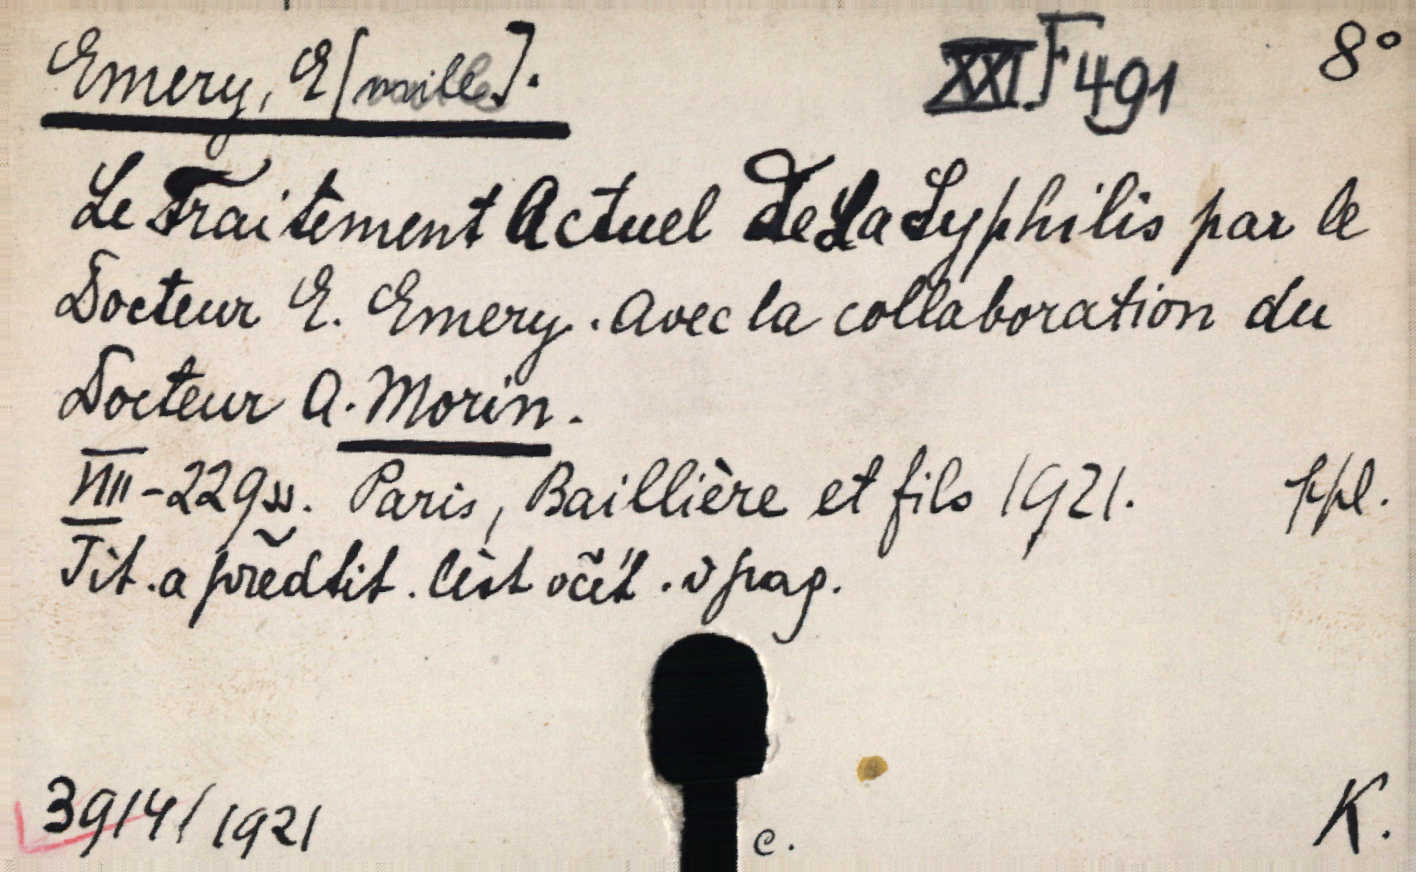 Emery, E[mile]. XXI F 491 8°
Le Traitement Actuel De La Syphilis par le
Docteur E. Emery. Avec la collaboration du
Docteur A. Morin.
VIII-229 ss. Paris, Baillière et fils 1921. ppl.
Tit. a předtit. část očísl. v pag.
3914/1921 c. K.